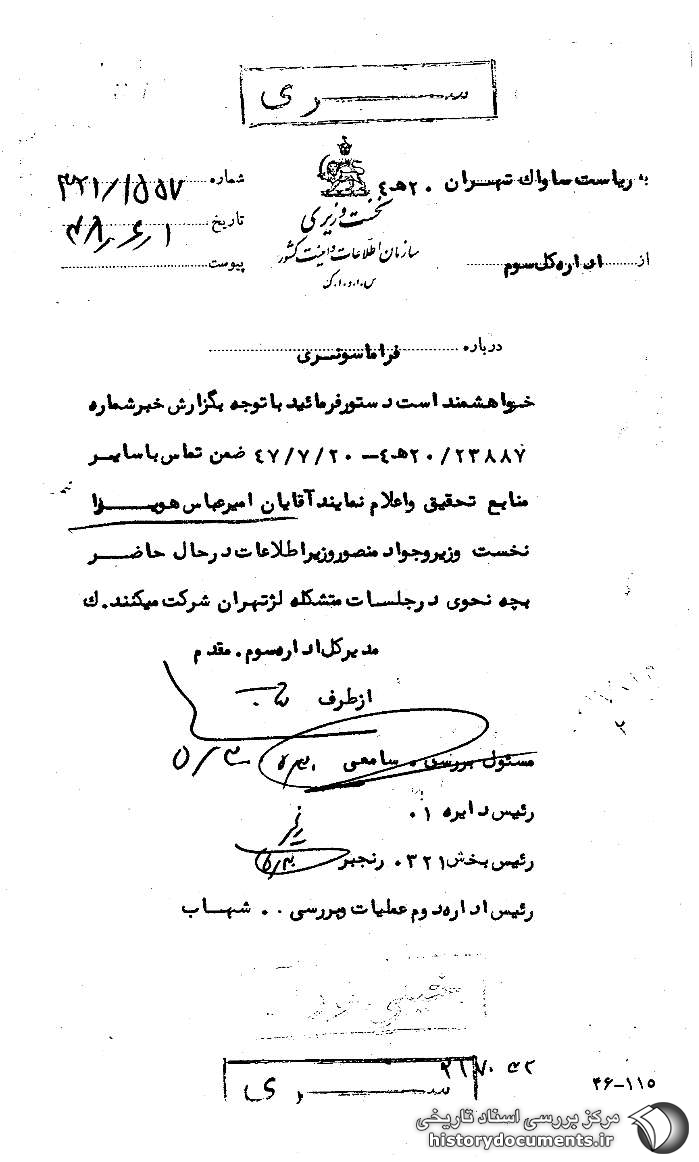 سری
به ریاست ساواك تهران ۲۰هـ٤
از اداره کل سوم
نخست وزیری
سازمان اطلاعات و امنیت کشور
س.ا.و.ا.ک
شماره ۳۲۱/۱۵۵۷
تاریخ ۴۸/۶/۱
پیوست
درباره فراماسونری
خواهشمند است دستور فرمائید با توجه بگزارش خبر شماره
۲۰/۲۳۸۸۷هـ٤ - ۴۷/۷/۲۰ ضمن تماس با سایر
منابع تحقیق و اعلام نمایند آقایان امیرعباس هویدا
نخست وزیر و جواد منصور وزیر اطلاعات در حال حاضر
بچه نحوی در جلسات متشکله لژ تهران شرکت میکنند. ك
مدیر کل اداره سوم . مقدم
از طرف
مسئول بررسی . سامعی
رئیس دایره ۱۰
رئیس بخش ۳۲۱ . رنجبر
رئیس اداره دوم عملیات و بررسی . . شهاب
سری
۴۶-۱۱۵
مرکز بررسی اسناد تاریخی
historydocuments.ir